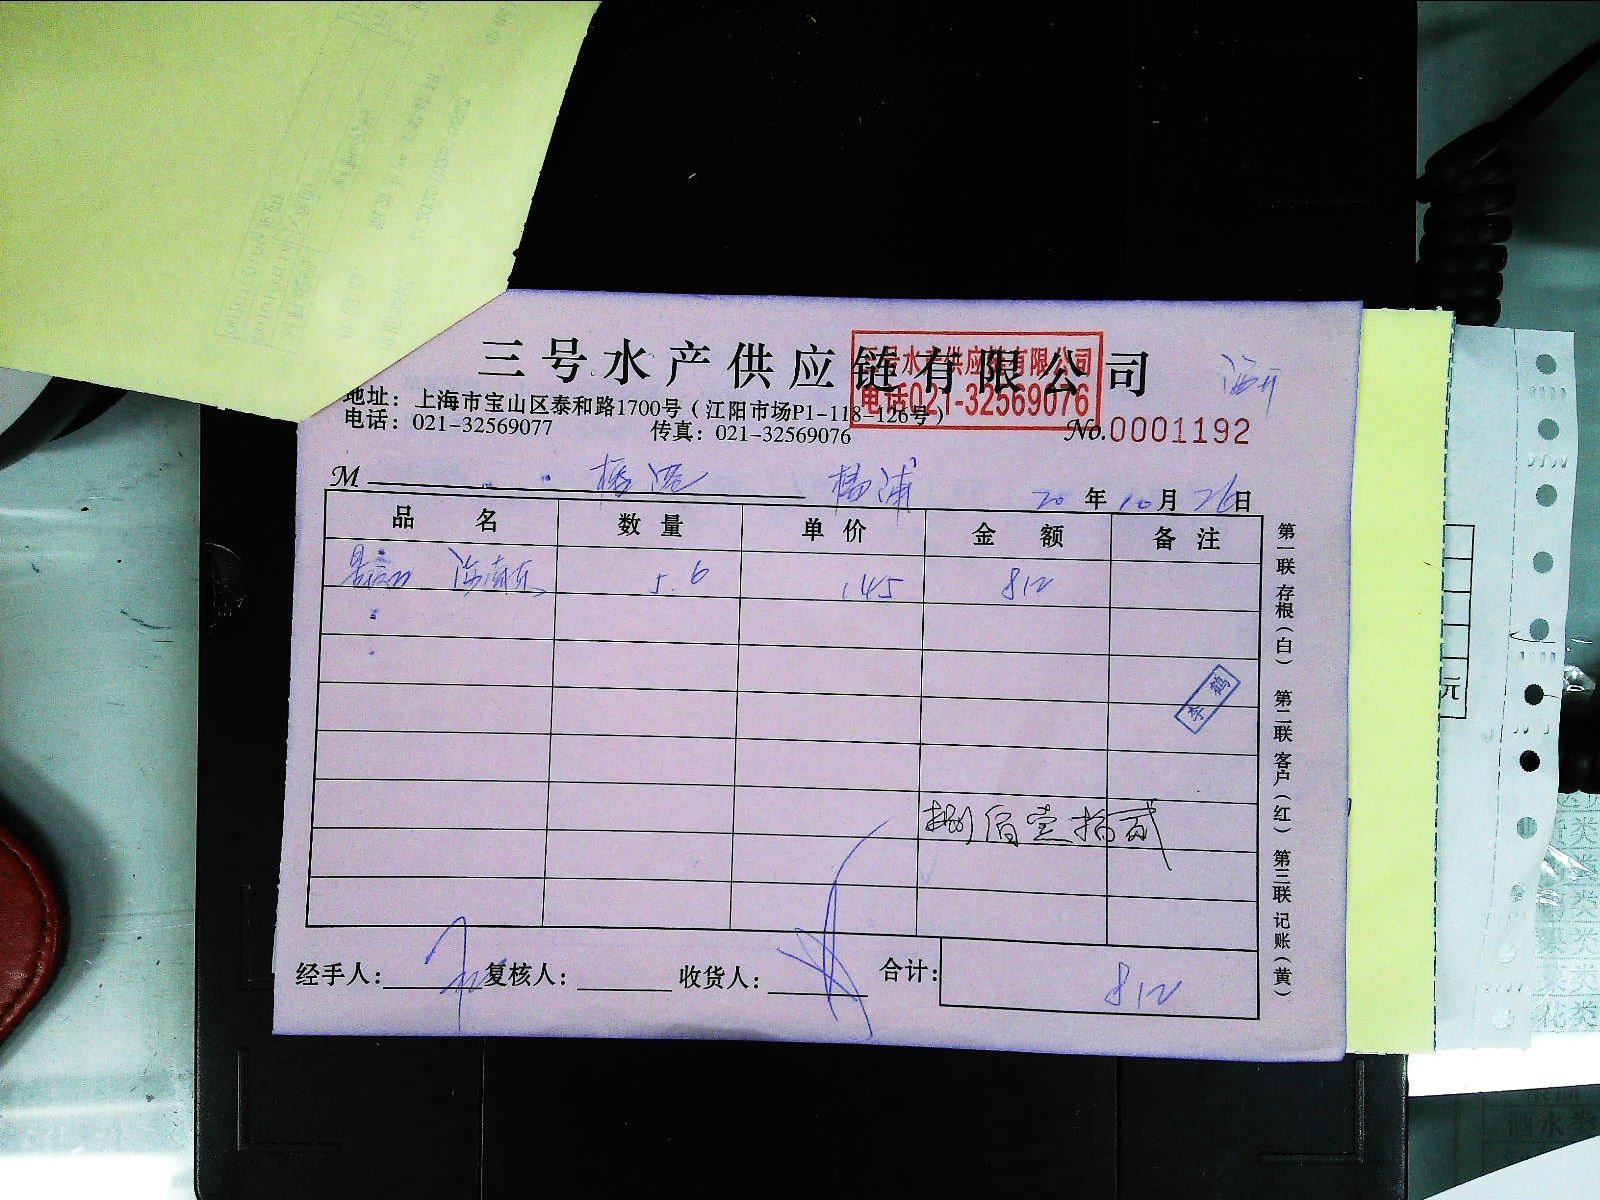 三号水产供应链有限公司
三号水产供应链有限公司
电话021-32569076
地址：上海市宝山区泰和路1700号（江阳市场P1-118-126号）
电话：021-32569077 传真：021-32569076
No.0001192
M 杨浦 20年10月26日
品名 数量 单价 金额 备注
5.6 145 812
李鹤
捌佰壹拾贰
经手人： 复核人： 收货人： 合计：812
第一联 存根（白） 第二联 客户（红） 第三联 记账（黄）
元
酒水类